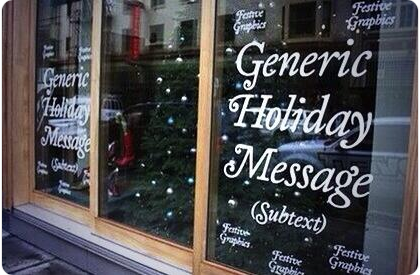 Festive
Graphics
Festive
Graphics
Generic
Holiday
Message
(Subtext)
Festive
Graphics
Festive
Graphics
Festive
Graphics
Festive
Graphics
Generic
Holiday
Message
(Subtext)
Festive
Graphics
Festive
Graphics
Festive
Graphics